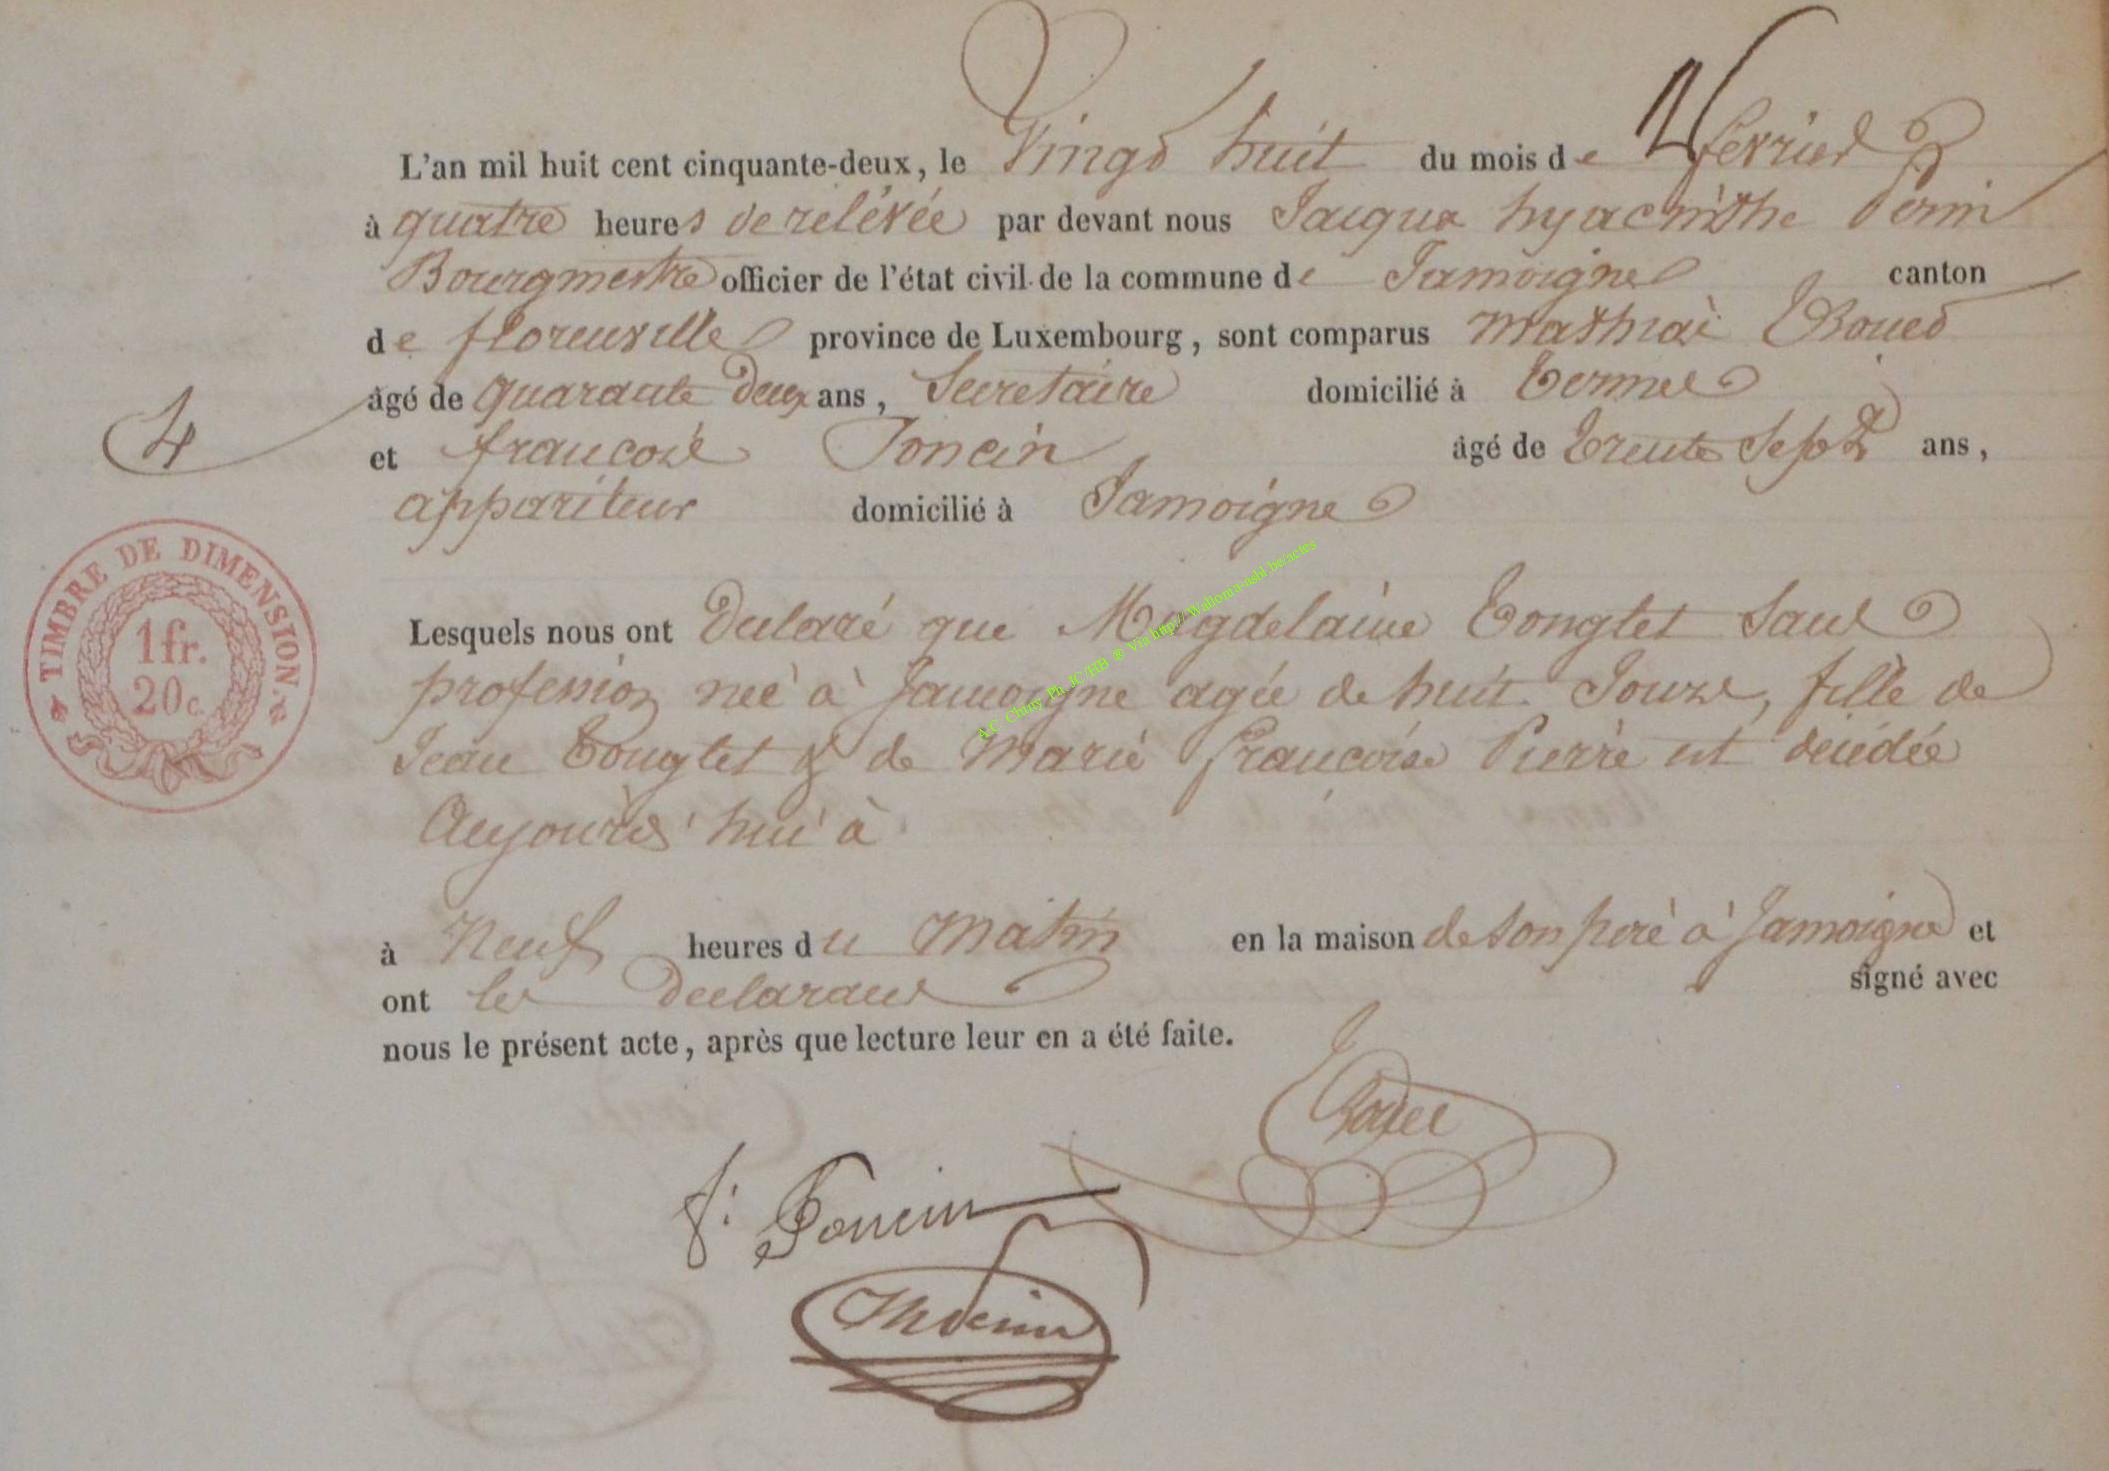 L'an mil huit cent cinquante-deux, le Vingt huit du mois de février
à quatre heures de relévée par devant nous Jacques hyacinthe
Bourgmestre officier de l'état civil de la commune de Jamoigne canton
de florenville province de Luxembourg, sont comparus Mathiai
âgé de quarante deux ans, Secretaire domicilié à Termes
et francois Poncin âgé de trente Sept ans,
appariteur domicilié à Jamoigne
4
TIMBRE DE DIMENSION.
1 fr.
20 c.
Lesquels nous ont Déclaré que Magdelaine Tonglet Sans
profession neé à Jamoigne agée de huit Jours, fille de
Jean Tonglet & de Marie françoise Pierre est décédée
Aujourd'hui à
à Neuf heures du Matin en la maison de son pere à Jamoigne et
ont les Declarans signé avec
nous le présent acte, après que lecture leur en a été faite.
f: Poncin
A.C. Chiny Ph. JC /HB ® Via http://Wallonia-asbl.be/actes